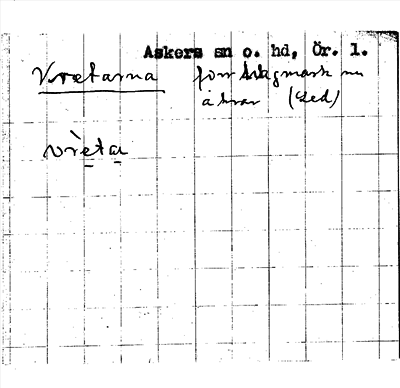 Askers sn o. hd, Ör. l.
Vretarna förr hagmark nu
åkrar (Led)
vrèta